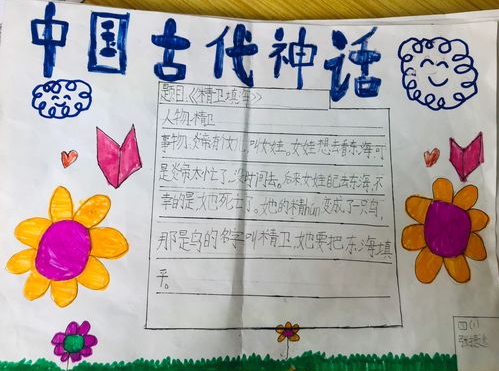 中国古代神话
题目:《精卫填海》
人物:精卫
事物:炎帝有个女儿叫女娃。女娃想去看东海,可
是炎帝太忙了,没时间去。后来女娃自己去东海,不
幸的是她死去了。她的精hún变成了一只鸟,
那是鸟的名字叫精卫,她要把东海填
平。
四(1)